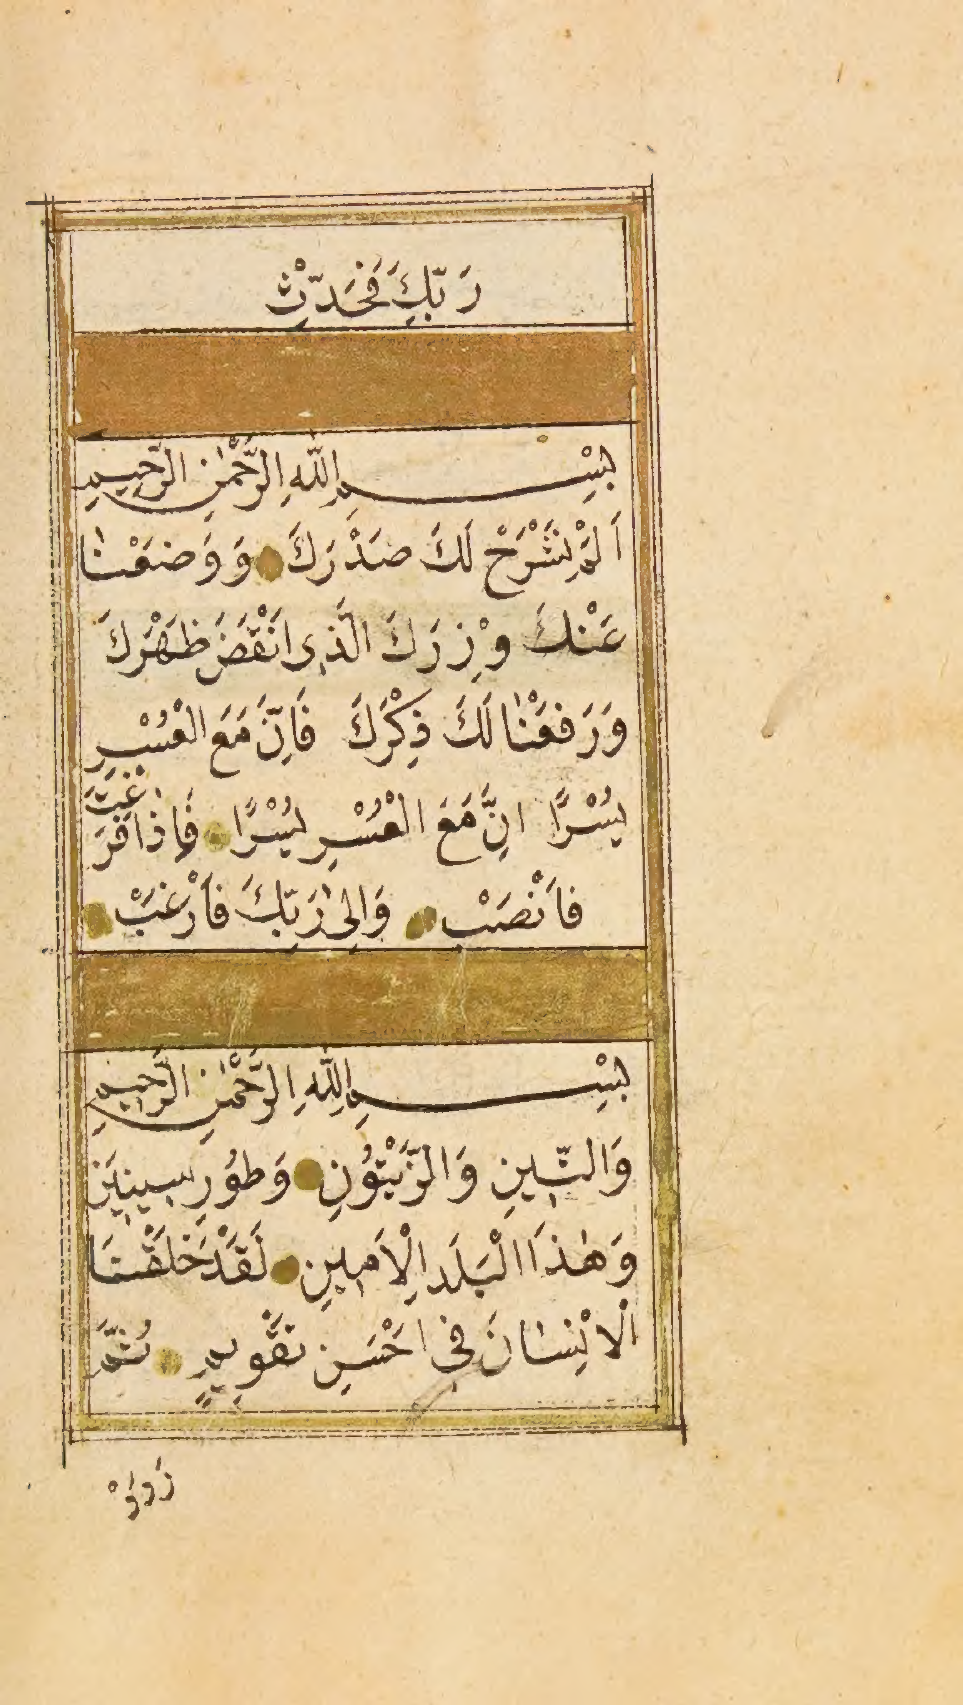 رَبِّكَ فَحَدِّثْ
بِسْمِ اللّٰهِ الرَّحْمٰنِ الرَّحِيمِ
اَلَمْ نَشْرَحْ لَكَ صَدْرَكَ وَوَضَعْنَا
عَنْكَ وِزْرَكَ الَّذِى اَنْقَضَ ظَهْرَكَ
وَرَفَعْنَا لَكَ ذِكْرَكَ فَاِنَّ مَعَ الْعُسْرِ
يُسْرًا اِنَّ مَعَ الْعُسْرِ يُسْرًا فَاِذَا فَرَغْتَ
فَانْصَبْ وَاِلٰى رَبِّكَ فَارْغَبْ
بِسْمِ اللّٰهِ الرَّحْمٰنِ الرَّحِيمِ
وَالتِّينِ وَالزَّيْتُونِ وَطُورِ سِينِينَ
وَهٰذَا الْبَلَدِ الْاَمِينِ لَقَدْ خَلَقْنَا
الْاِنْسَانَ فِى اَحْسَنِ تَقْوِيمٍ ثُمَّ
رَدَدْ